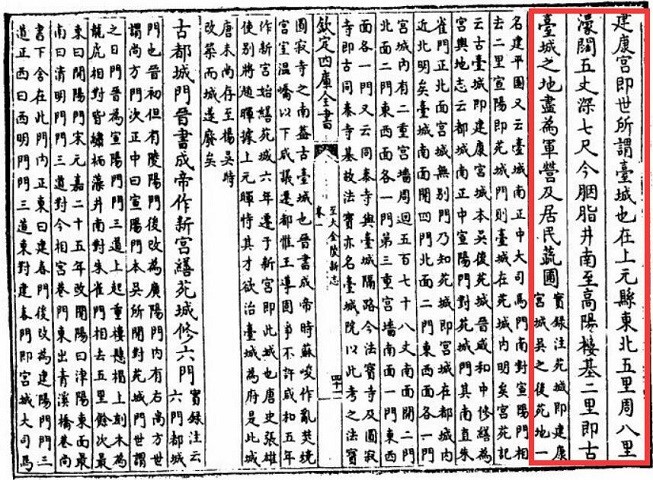 建康宮即世所謂臺城也在上元縣東北五里周八里
濠闊五丈深七尺今胭脂井南至高陽樓基二里即古
臺城之地盡為軍營及居民蔬圃
實録注苑城即建康
宮城吳之後苑地一
名建平園又云臺城南正中大司馬門南對宣陽門相
去二里宣陽即苑城門則臺城在苑城内明矣宮苑記
云古臺城即建康宮城本吳後苑城晉咸和中修繕為
宮輿地志云都城南正中宣陽門對苑城門其南直朱
雀門正北面宮城無別門乃知苑城即宮城在都城内
近北明矣臺城南面開四門北面二門東西面各一門
宮城内有二重宮墻周迴五百七十八丈南面開二門
北面二門東西面各一門第三重宮墻南面一門東西
面各一門又云同泰寺與臺城隔路今法寶寺及圓寂
寺即古同泰寺基故法寶亦名臺城院以此考之法寶
欽定四庫全書
至大金陵新志
卷一
四十一
圓寂寺之南蓋古臺城也晉書成帝時蘇峻作亂焚燒
宮室溫嶠以下咸議遷都惟王導固爭不許咸和五年
作新宮始繕苑城六年遷于新宮即此城也唐史張雄
使別將趙暉據上元暉恃其才欲治臺城為府是此城
唐末尚存至楊吳時
改築而城遂廢矣
古都城門晉書成帝作新宮繕苑城修六門
實録注云
六門都城
門也晉初但有陵陽門後改為廣陽門内有右尚方世
謂尚方門次正中曰宣陽門本吳所開對苑城門世謂
之曰門晉為宣陽門門三道上起重樓懸楣上刻木為
龍虎相對皆繡栭藻井南對朱雀門相去五里餘次最
東曰開陽門宋元嘉二十五年改開陽曰津陽東面最
南曰清明門門三道對今湘宮巷門東出青溪橋巷尚
書下舍在此門内正東曰建春門後改為建陽門門三
道正西曰西明門門三道東對建春門即宮城大司馬